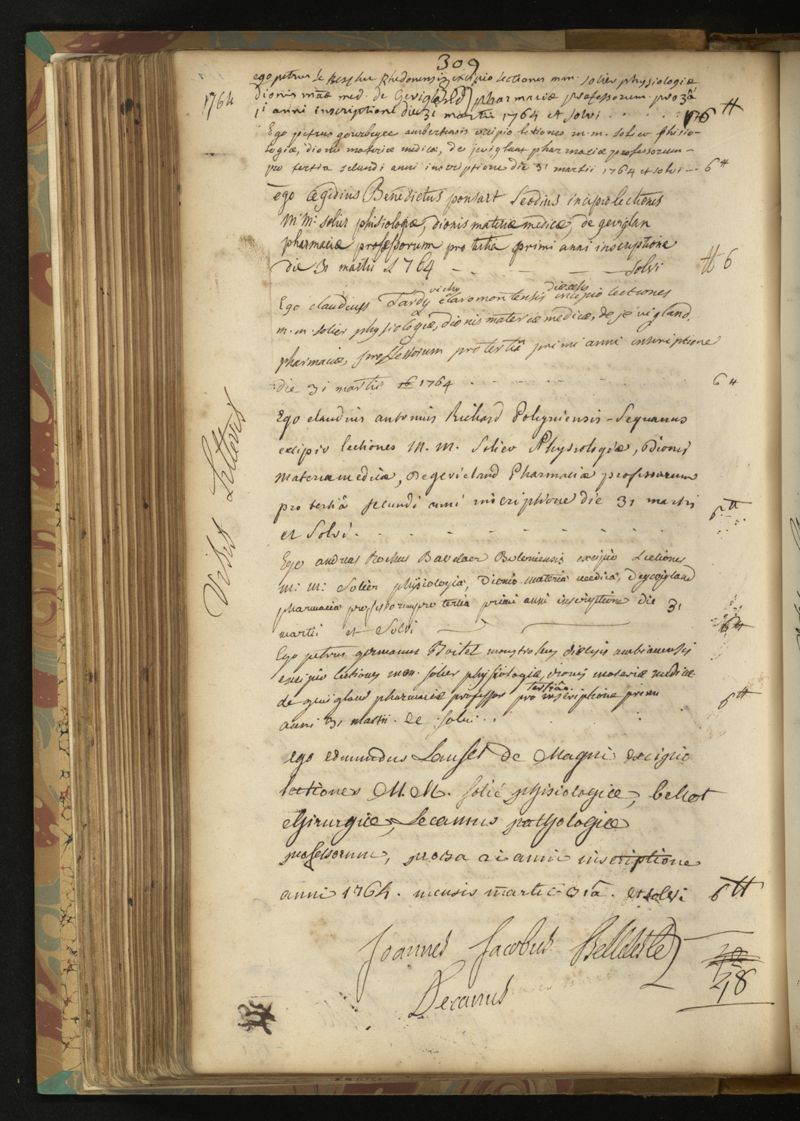 309
1764
ego petrus le Rhedonensis excipio lectiones mm. solier physiologiæ
dionis mat. med. de Gevigland pharmaciæ professorum pro 3â
1i anni inscriptione die 31 martii 1764 et solvi . . . . . 6 ₶
Ego petrus gourbeyre ambertensis excipio lectiones m. m. solier phisio-
logiæ, dionis materiæ medicæ, de jevigland pharmaciæ professorum-
pro tertia secundi anni inscriptione die 31 martii 1764 et solvi -- 6 ₶
ego Ægidius Benedictus ponsart Leodius incipio lectiones
M. M. solier phisiologiæ, dionis materiæ medicæ, de geviglan
pharmaciæ professorum pro tertia primi anni inscriptione
die 31 martii 1764 - - - - - solvi ₶ 6
Ego claudius Lardy vichy claromontensis diœcesis excipio lectiones
m. m. solier physiologiæ, dionis materiæ medicæ, de jevigland
pharmaciæ, professorum pro tertiâ primi anni inscriptione
die 31 martii 1764 . . . . . 6 ₶
Visis Litteris
Ego claudius antonius Richard Poligniensis-Sequanus
excipio lectiones M. M. Solier Physiologiæ, Dionis
materiæ medicæ, de gevieland Pharmaciæ professorum
pro tertiâ secundi anni inscriptione die 31 martii
et Solvi . - - - - - - 6 ₶
Ego andreas Rochus Boloniensis excipio Lectiones
m: m: Solier physiologia, Dionis materia medica, Degevigland
pharmacia professorum pro tertia primi anni inscriptione die 31
martii et Solvi 6 ₶
Ego petrus germanus Boitel diœcesis ambianensis
excipio lectiones mm. solier physiologiæ, dionis materiæ medicæ
de gevigland pharmaciæ professor pro tertiâ inscriptione primi
anni 31 martii. et solvi . . 6 ₶
ego edmundus Lanset de Magni excipio
lectiones M. M. solié physiologiæ, bellot
chirurgiæ, Lecamus pathologiæ
professorum, pro 3a 2i anni inscriptione
anni 1764. mensis martii 31â. et solvi 6 ₶
Joannes Jacobus Belleteste
Decanus
48